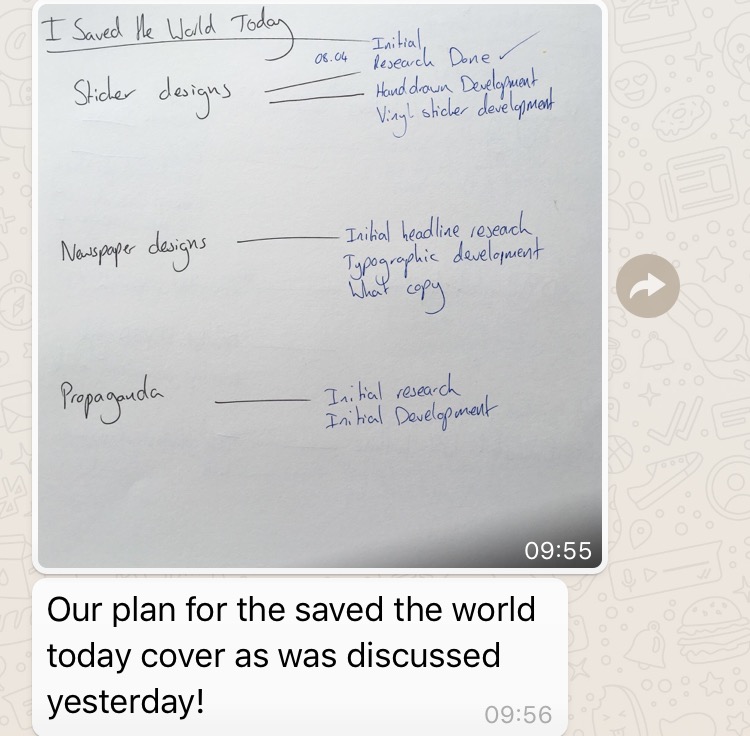 I Saved the World Today
Initial
08.04 Research Done ✓
Sticker designs
Handdrawn Development
Vinyl sticker development
Newspaper designs
Initial headline research
Typographic development
What copy
Propaganda
Initial research
Initial Development
09:55
Our plan for the saved the world
today cover as was discussed
yesterday!
09:56